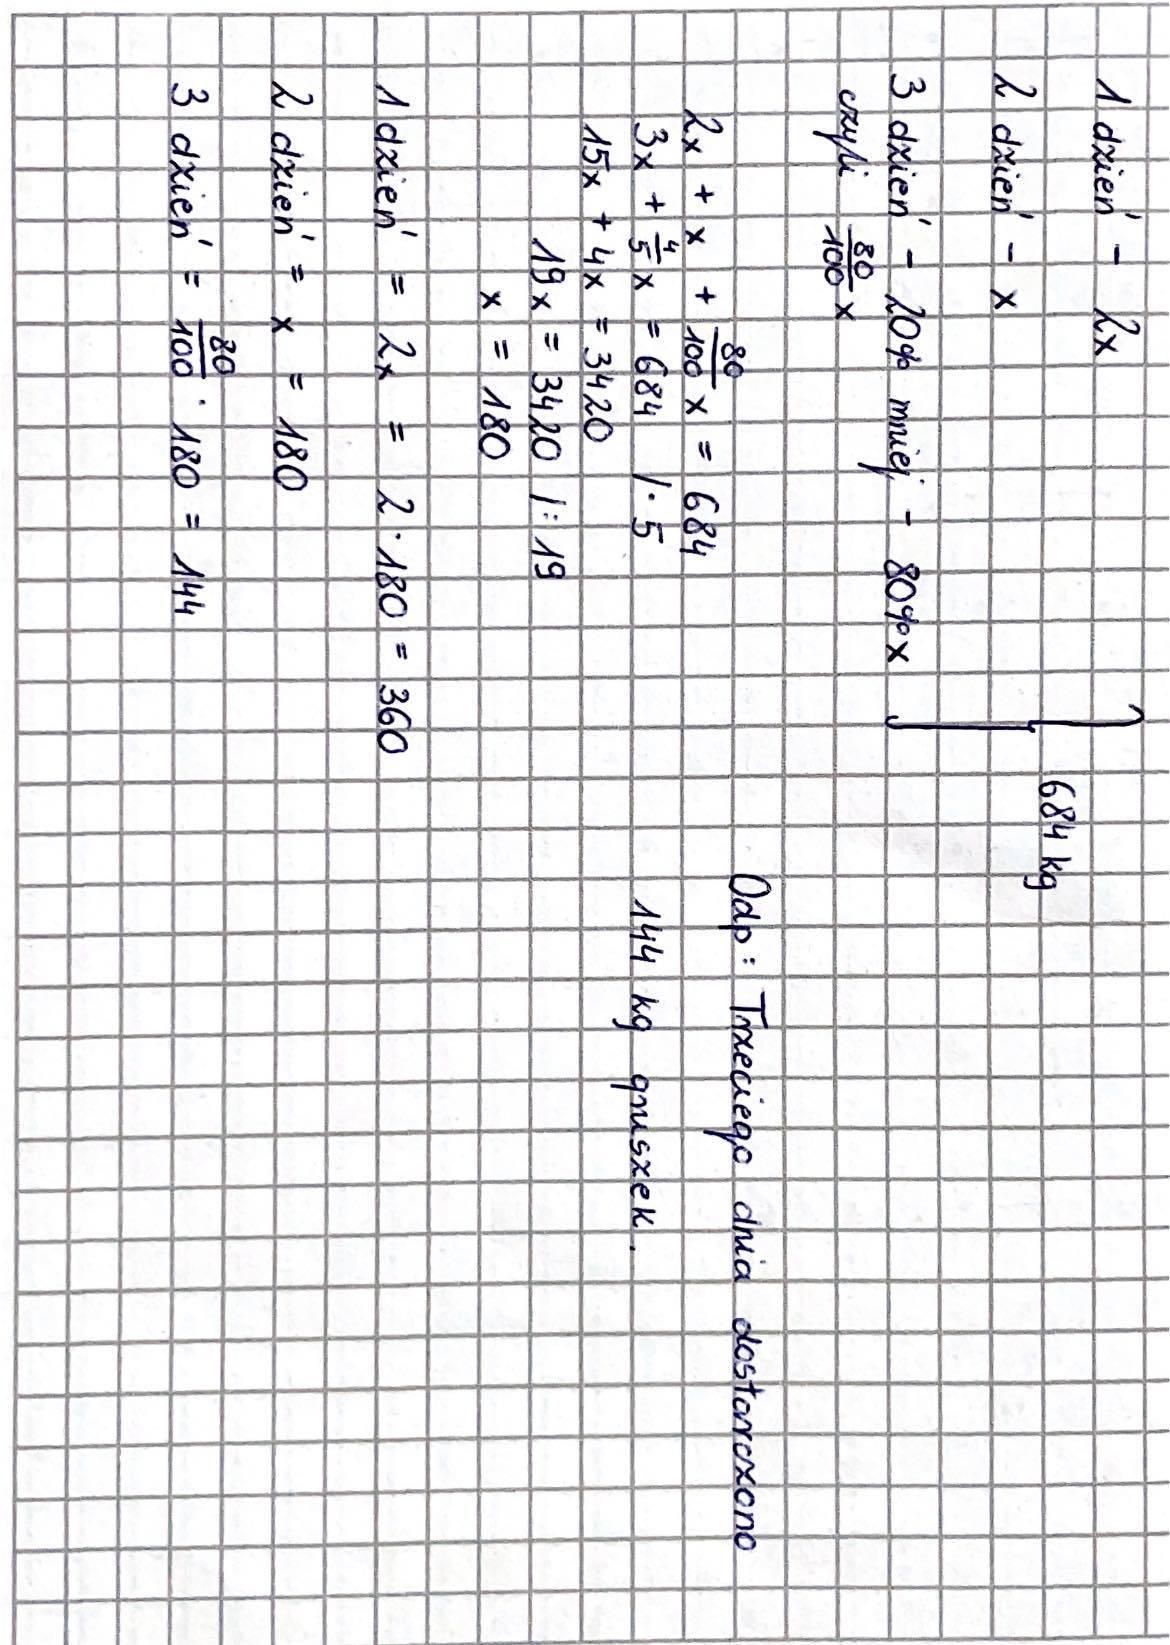 1 dzień - 2x
2 dzień - x
3 dzień - 20% mniej - 80% x
czyli 80/100 x
684 kg
2x + x + 80/100 x = 684
3x + 4/5 x = 684 /· 5
15x + 4x = 3420
19x = 3420 /: 19
x = 180
1 dzień = 2x = 2 · 180 = 360
2 dzień = x = 180
3 dzień = 80/100 · 180 = 144
Odp: Trzeciego dnia dostarczono
144 kg gruszek.